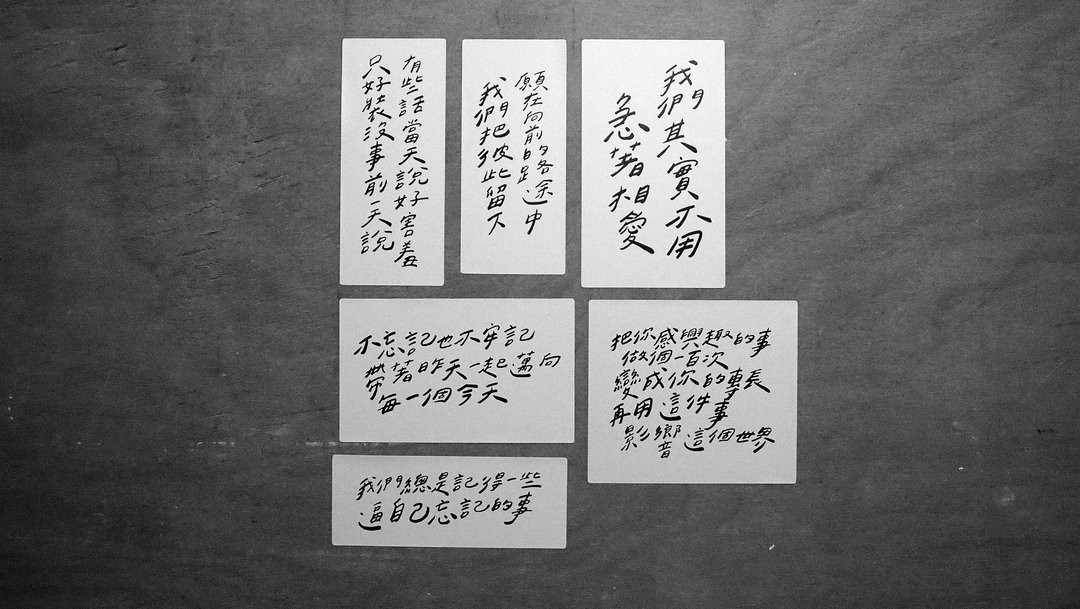 有些話當天說好害羞
只好裝沒事前一天說
願在向前的路途中
我們把彼此留下
我們其實不用
急著相愛
不忘記也不牢記
帶著昨天一起邁向
每一個今天
把你感興趣的事
做個一百次
變成你的專長
再用這件事
影響這個世界
我們總是記得一些
逼自己忘記的事